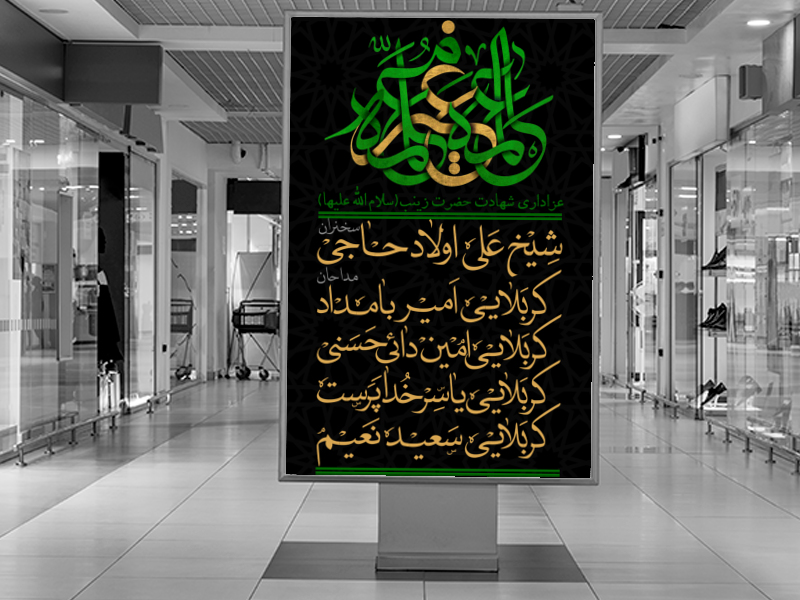 عزاداری شهادت حضرت زینب(سلام الله علیها)
سخنران
شیخ علی اولاد حاجی
مداحان
کربلایی امیر بامداد
کربلایی امین دائی حسنی
کربلایی یاسر خداپرست
کربلایی سعید نعیم